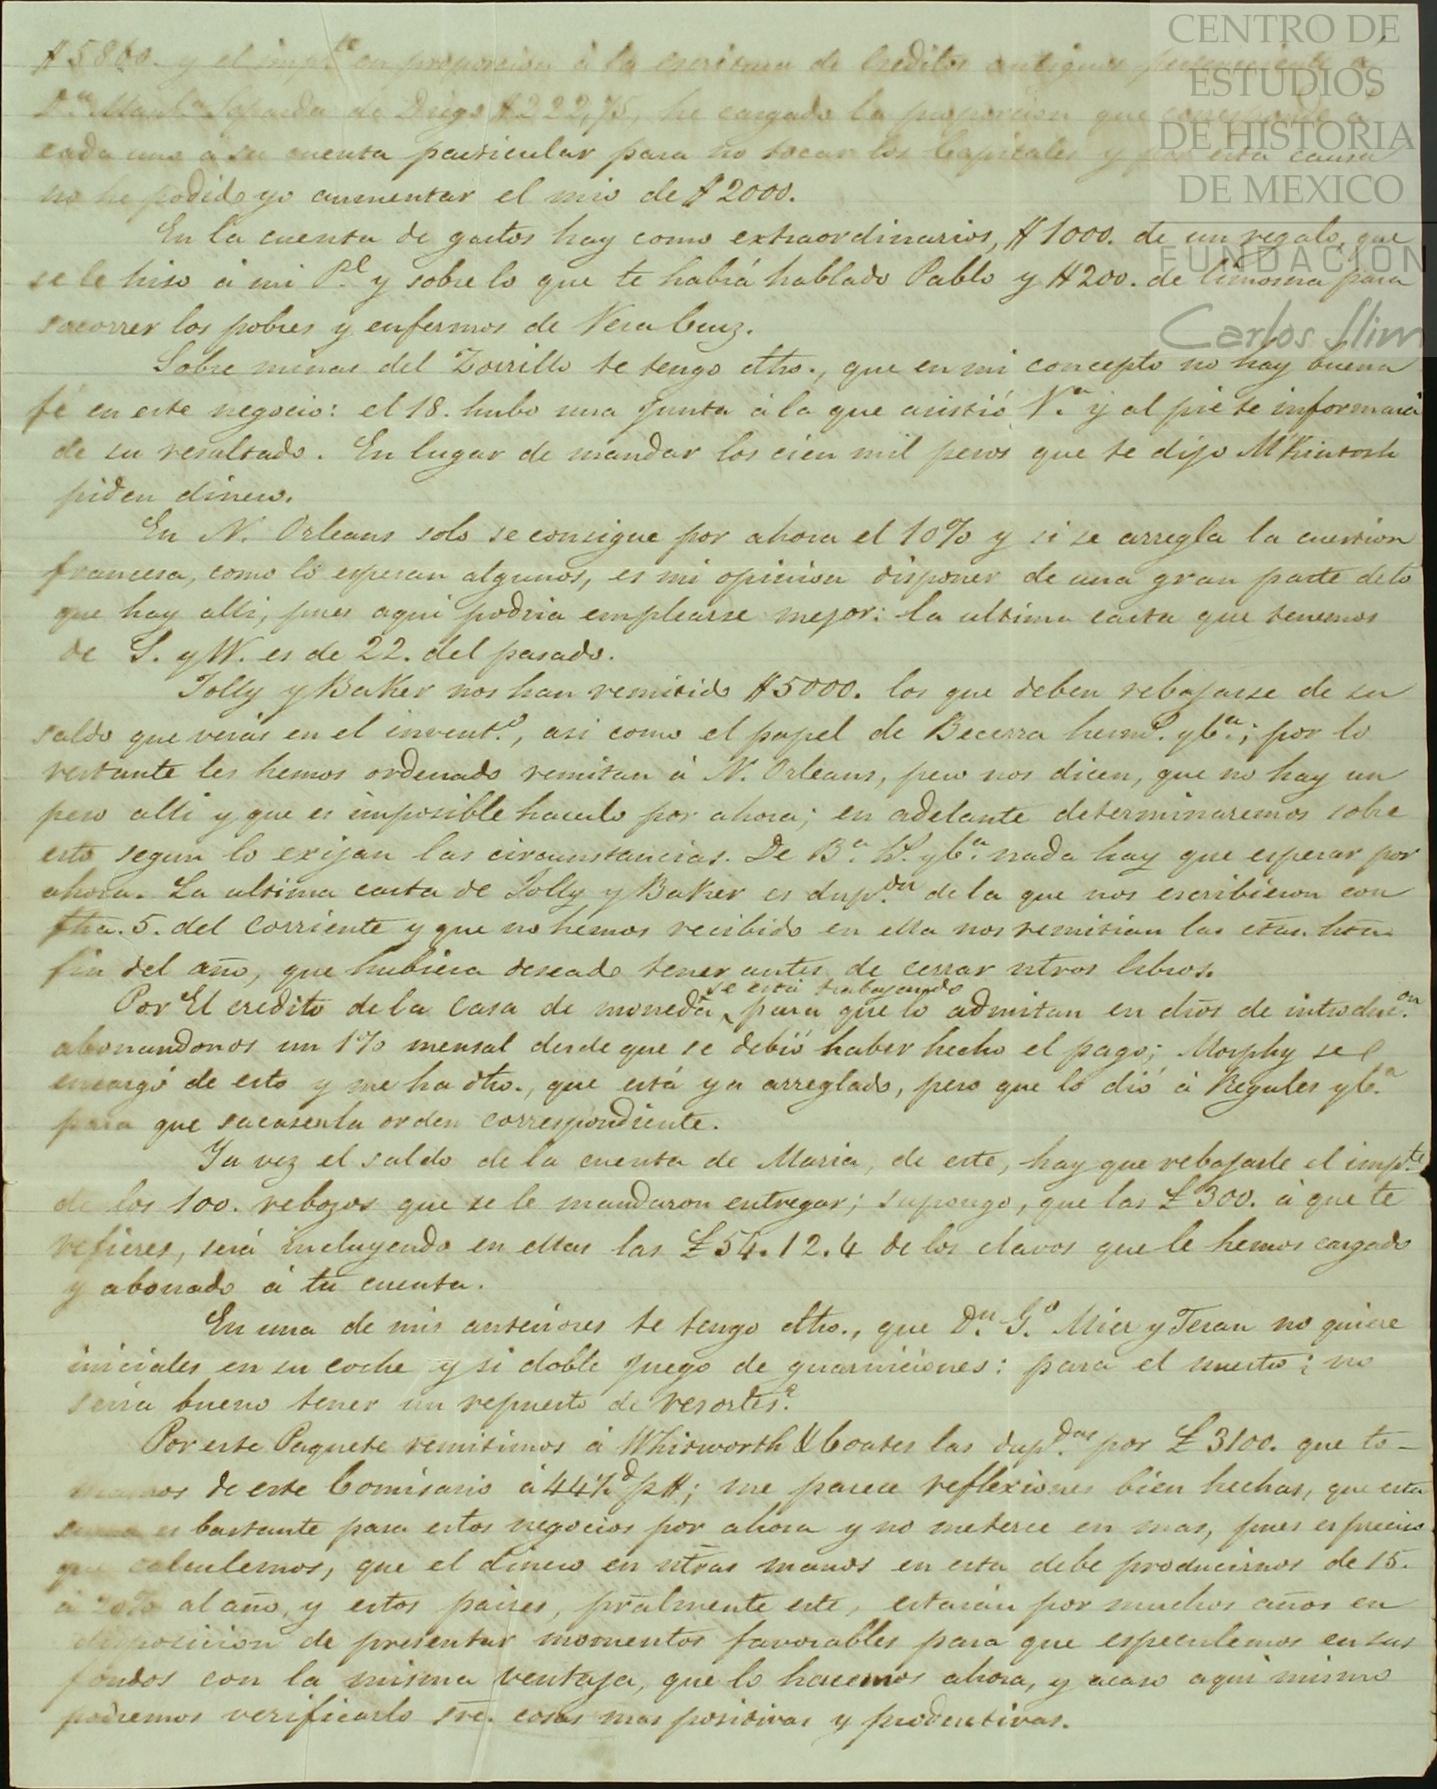 CENTRO DE
ESTUDIOS
DE HISTORIA
DE MEXICO
FUNDACIÓN
Carlos Slim
$5860. y el impte en proporcion à la de Creditos antiguos perteneciente à
Da. Manla. de Diego $222,75, he cargado la proporcion que corresponde à
cada uno a su cuenta particular para no tocar los Capitales y por esta causa
no he podido yo aumentar el mio de $2000.
En la cuenta de gastos hay como extraordinarios, $1000. de un regalo, que
se le hiso à mi Pe. y sobre lo que te habrá hablado Pablo y $200. de limosna para
socorrer los pobres y enfermos de Vera Cruz.
Sobre minas del Zorrillo te tengo dho., que en mi concepto no hay buena
fé en este negocio: el 18. hubo una Junta à la que asistió Va. y al pie te informará
de su resultado. En lugar de mandar los cien mil pesos que te dijo McKintosh
piden dinero.
En N. Orleans solo se consigue por ahora el 10% y si se arregla la cuestion
francesa, como lo esperan algunos, es mi opinion disponer de una gran parte de lo
que hay alli, pues aqui podria emplearse mejor: la ultima carta que tenemos
de L. y W. es de 22. del pasado.
Jolly y Baker nos han remitido $5000. los que deben rebajarse de su
saldo que verás en el invento., asi como el papel de Becerra hermo. y Ca.; por lo
restante les hemos ordenado remitan à N. Orleans, pero nos dicen, que no hay un
peso alli y que es imposible hacerlo por ahora; en adelante determinaremos sobre
esto segun lo exijan las circunstancias. De Ba. ho. y Ca. nada hay que esperar por
ahora. La ultima carta de Jolly y Baker es dupdon de la que nos escribieron con
fha. 5. del corriente y que no hemos recibido en ella nos remitian las ctas. hta.
fin del año, que hubiera deseado tener antes de cerrar ntros libros.
Por El credito de la Casa de moneda se está trabajando para que lo admitan en dros de introducon.
abonandonos un 1% mensal desde que se debió haber hecho el pago; Morphy se
encargó de esto y me ha dho., que está ya arreglado, pero que lo dió à Regules y Ca.
para que sacasen la orden correspondiente.
Ya vez el saldo de la cuenta de Maria, de este, hay que rebajarle el impte.
de los 100. rebozos que se le mandaron entregar; supongo, que las £300. à que te
refieres, será incluyendo en ellas las £54.12.4 de los clavos que le hemos cargado
y abonado à tu cuenta.
En una de mis anteriores te tengo dho., que Dn. Go. Mier y Teran no quiere
iniciales en su coche y si doble juego de guarniciones: para el nuestro ¿no
seria bueno tener un repuesto de resortes?
Por este Paquete remitimos à Whitworth & Coates las dupdas por £3100. que to-
mamos de este Comisario à 44½d p$; me parece reflexiones bien hechas, que esta
suma es bastante para estos negocios por ahora y no meterse en mas, pues es preciso
que calculemos, que el dinero en ntras manos en esta debe producirnos de 15.
à 20% al año, y estos paises, pralmente este, estarán por muchos años en
disposicion de presentar momentos favorables para que especulemos en sus
fondos con la misma ventaja, que lo hacemos ahora, y acaso aqui mismo
podremos verificarlo sre. cosas mas positivas y productivas.